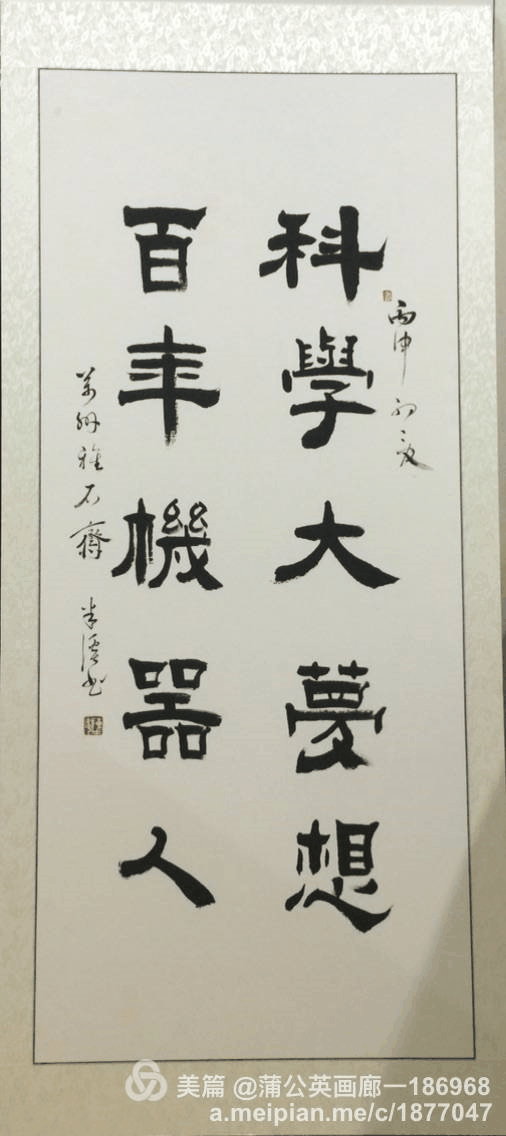 丙申初夏
科學大夢想
百年機器人
萬州雅石齋 半
书
美篇 @蒲公英画廊一186968
a.meipian.me/c/1877047